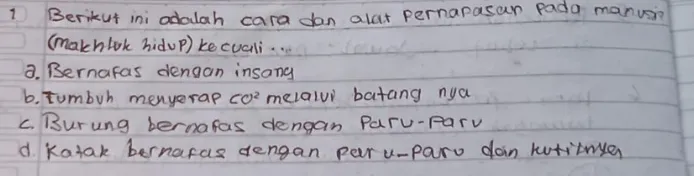 1 Berikut ini adalah cara dan alat pernapasan pada manusia
(makhluk hidup) kecuali...
a. Bernafas dengan insang
b. Tumbuh menyerap CO² melalui batang nya
c. Burung bernafas dengan Paru-Paru
d. Katak bernafas dengan paru-paru dan kulitnya